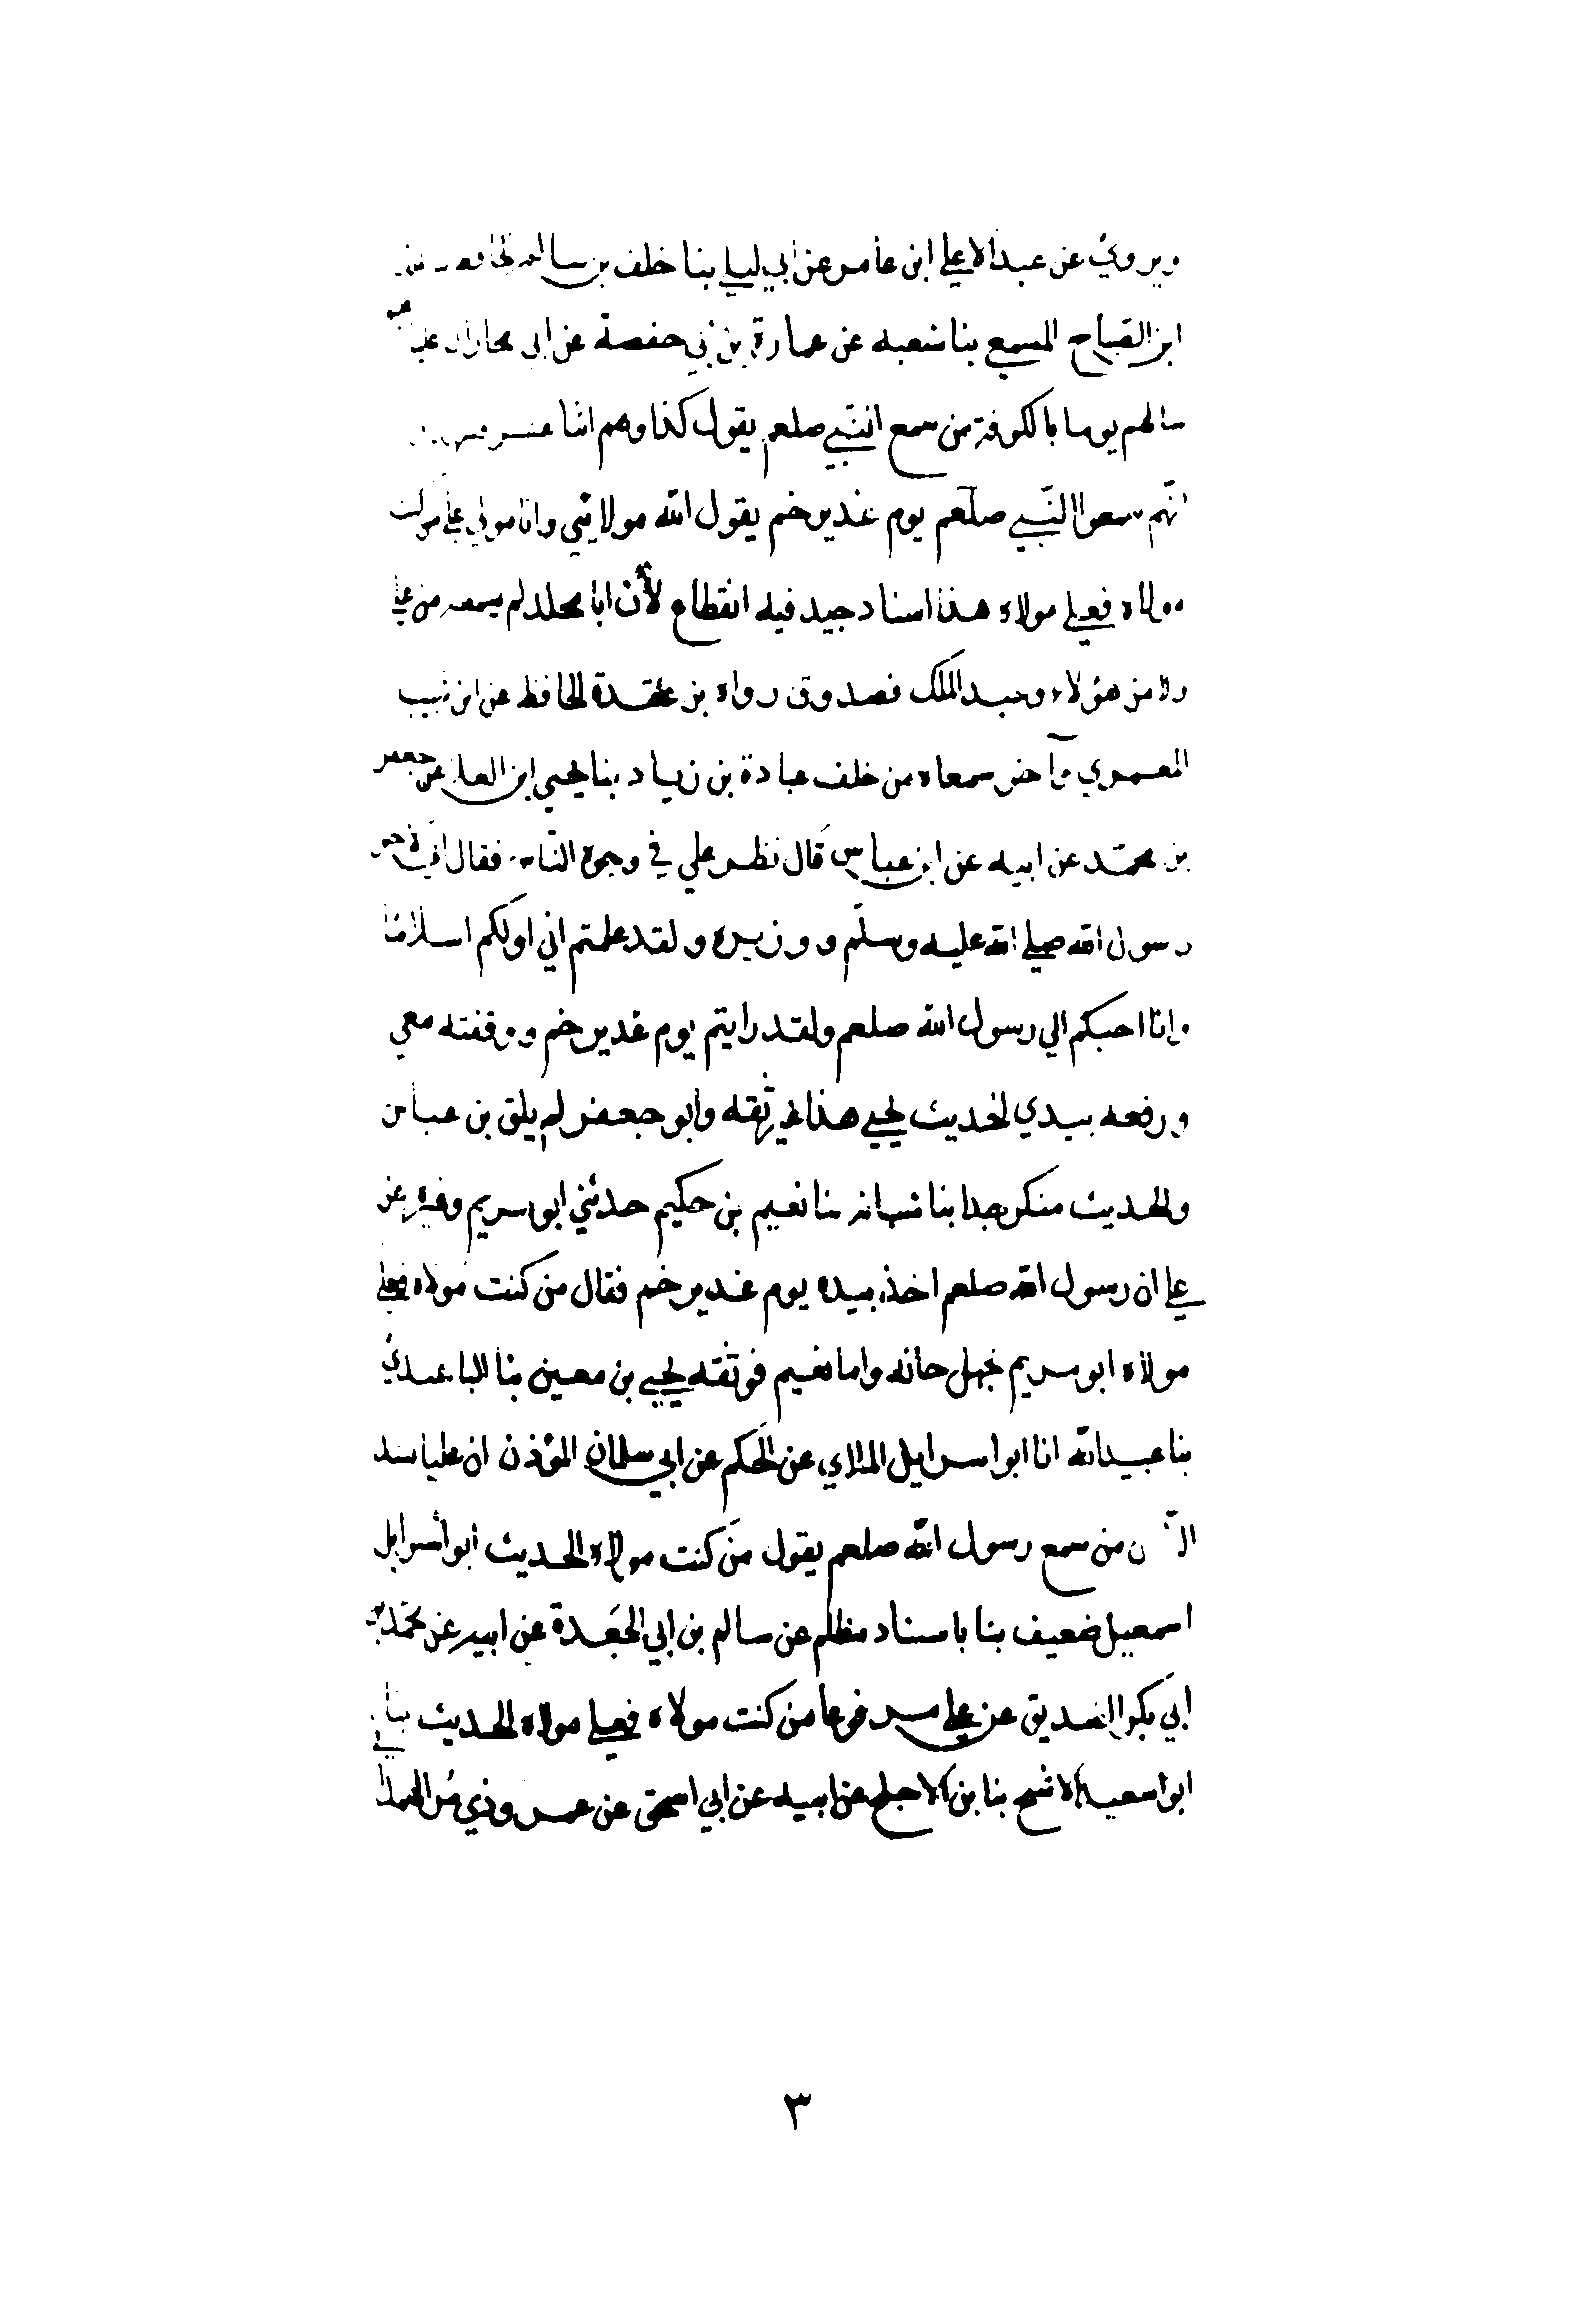 ويروي عن عبد الاعلي ابن عامر عن ابي ليلي بنا خلف بن سالم
ابن الصباح المسمع بنا شعبه عن عمارة بن ابي حفصة عن ابي
سالهم يوما بالكوفة من سمع النبي صلعم يقول كذا وهم اثنا عشر
انهم سمعوا النبي صلعم يوم غدير خم يقول الله مولاي وانا مولي علي
مولاه فعلي مولاه هذا اسناد جيد فيه انقطاع لأن ابا مجلد لم يسمعه من علي
ولا من هؤلاء وعبد الملك فصدوق رواه بن عقدة الحافظ عن ابن شبيب
المعمري سمعاه من خلف عبادة بن زياد بنا يحيي ابن العلا عن جعفر
بن محمد عن ابيه عن ابن عباس قال نظر علي في وجوه الناس فقال اني
رسول الله صلي الله عليه وسلم ووزيره ولقد علمتم اني اولكم اسلاما
وانا احبكم الي رسول الله صلعم ولقد رايتم يوم غدير خم ووقفته معي
ورفعه بيدي الحديث يحيي هذا غير ثقه وابو جعفر لم يلق بن عباس
والحديث منكر جدا بنا شبانه بنا نعيم بن حكيم حدثني ابو مريم وغيره عن
علي ان رسول الله صلعم اخذ بيده يوم غدير خم فقال من كنت مولاه فعلي
مولاه ابو مريم نجهل حاله واما نعيم فوثقه يحيي بن معين بنا الباغندي
بنا عبيدالله انا ابو اسرايل الملاي عن الحكم عن ابي سلمان المؤذن ان عليا نشد
من سمع رسول الله صلعم يقول من كنت مولاه الحديث ابو اسرايل
اسمعيل ضعيف بنا باسناد مظلم عن سالم بن ابي الجعدة عن ابيه عن محمد بن
ابي بكر الصديق عن علي مرفوعا من كنت مولاه فعلي مولاه الحديث بنا
ابو سعيد الاشج بنا بن الاجلح عن ابيه عن ابي اسحق عن عمرو ذي مر الهمداني
٣